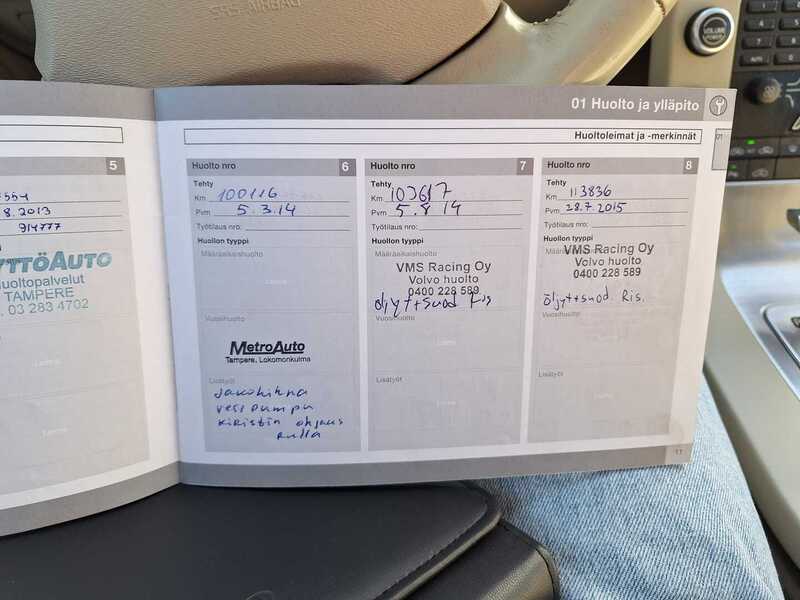 SRS AIRBAG
VOLUME
01 Huolto ja ylläpito
Huoltoleimat ja -merkinnät
01
5
8.2013
914777
YTTÖAUTO
uoltopalvelut
TAMPERE
03 283 4702
Huolto nro 6
Tehty
Km 100116
Pvm 5.3.14
Työtilaus nro:
Huollon tyyppi
Määräaikaishuolto
Leima
Vuosihuolto
MetroAuto
Tampere, Lokomonkulma
Lisätyöt
Jakohihna
vesipumpu
kiristin ohjaus
rulla
Huolto nro 7
Tehty
Km 103617
Pvm 5.8 14
Työtilaus nro:
Huollon tyyppi
Määräaikaishuolto
VMS Racing Oy
Volvo huolto
0400 228 589
öljyt+suod Ris
Vuosihuolto
Leima
Lisätyöt
Leima
Huolto nro 8
Tehty
Km 113836
Pvm 28.7.2015
Työtilaus nro:
Huollon tyyppi
Määräaikaishuolto
VMS Racing Oy
Volvo huolto
0400 228 589
öljyt+suod. Ris.
Vuosihuolto
Leima
Lisätyöt
Leima
11